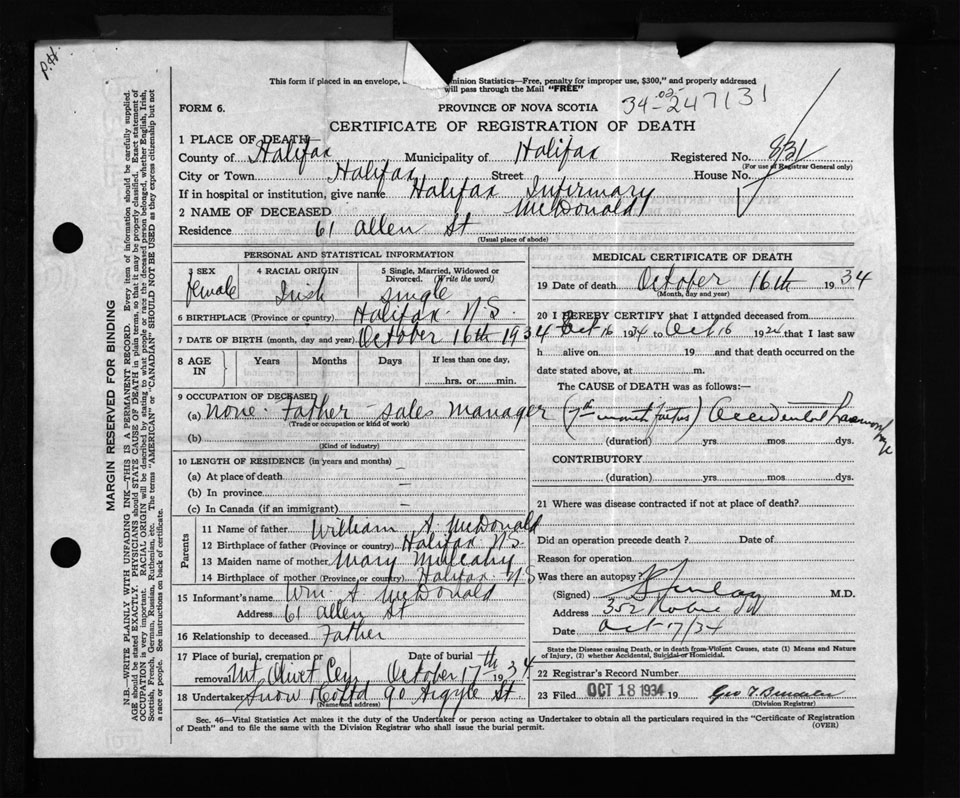 P.H.
This form if placed in an envelope, minion Statistics—Free, penalty for improper use, $300," and properly addressed
will pass through the Mail "FREE"
FORM 6.
PROVINCE OF NOVA SCOTIA
34-02-247131
CERTIFICATE OF REGISTRATION OF DEATH
1 PLACE OF DEATH
County of Halifax Municipality of Halifax Registered No. 831
(For use of Registrar General only)
City or Town Halifax Street House No.
If in hospital or institution, give name Halifax Infirmary
2 NAME OF DECEASED McDonald
Residence 61 Allen St
(Usual place of abode)
PERSONAL AND STATISTICAL INFORMATION
3 SEX 4 RACIAL ORIGIN 5 Single, Married, Widowed or
Divorced. (Write the word)
female Irish single
6 BIRTHPLACE (Province or country) Halifax N.S.
7 DATE OF BIRTH (month, day and year) October 16th 1934
8 AGE IN Years Months Days If less than one day,
hrs. or min.
9 OCCUPATION OF DECEASED
(a) None. Father - sales manager
(Trade or occupation or kind of work)
(b)
(Kind of industry)
10 LENGTH OF RESIDENCE (in years and months)
(a) At place of death
(b) In province
(c) In Canada (if an immigrant)
Parents
11 Name of father William A. McDonald
12 Birthplace of father (Province or country) Halifax N.S.
13 Maiden name of mother Mary Mulcahy
14 Birthplace of mother (Province or country) Halifax N S
15 Informant's name Wm A McDonald
Address 61 Allen St
16 Relationship to deceased Father
17 Place of burial, cremation or Date of burial
removal Mt Olivet Cem October 17th 1934
18 Undertaker Snow & Co Ltd 90 Argyle St.
(Name and address)
MEDICAL CERTIFICATE OF DEATH
19 Date of death October 16th 1934
(Month, day and year)
20 I HEREBY CERTIFY that I attended deceased from
Oct 16 1934 to Oct 16 1934 that I last saw
h alive on 19 and that death occurred on the
date stated above, at m.
The CAUSE of DEATH was as follows:—
(7th month foetus) Accidental
(duration) yrs. mos. dys.
CONTRIBUTORY
(duration) yrs. mos. dys.
21 Where was disease contracted if not at place of death?
Did an operation precede death? Date of
Reason for operation
Was there an autopsy?
(Signed) M.D.
Address 352 Robie St
Date Oct 17/34
State the Disease causing Death, or in death from Violent Causes, state (1) Means and Nature
of Injury, (2) whether Accidental, Suicidal or Homicidal.
22 Registrar's Record Number
23 Filed OCT 18 1934 19
(Division Registrar)
Sec. 46—Vital Statistics Act makes it the duty of the Undertaker or person acting as Undertaker to obtain all the particulars required in the "Certificate of Registration
of Death" and to file the same with the Division Registrar who shall issue the burial permit. (OVER)
MARGIN RESERVED FOR BINDING
N.B.—WRITE PLAINLY WITH UNFADING INK—THIS IS A PERMANENT RECORD. Every item of information should be carefully supplied.
AGE should be stated EXACTLY. PHYSICIANS should STATE CAUSE OF DEATH in plain terms, so that it may be properly classified. Exact statement of
OCCUPATION is very important. RACIAL ORIGIN will be described by stating to what people or race the deceased person belonged, whether English, Irish,
Scottish, French, German, Russian, Ruthenian, etc. The terms "AMERICAN" or "CANADIAN" SHOULD NOT BE USED as they express citizenship but not
a race or people. See instructions on back of certificate.